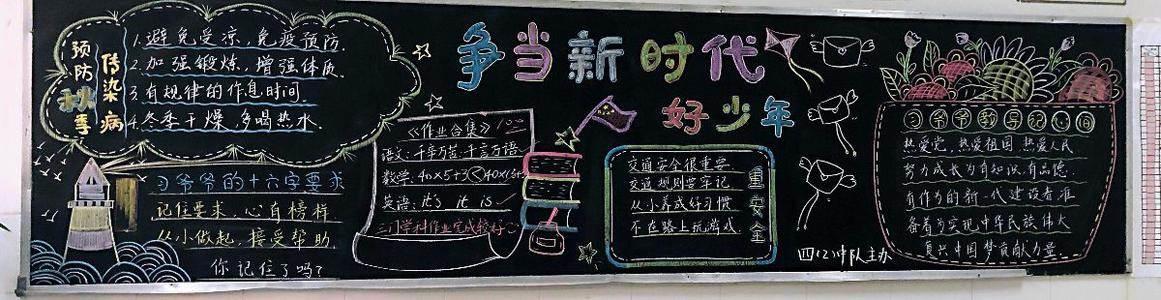 争当新时代
好少年
预防
秋季
传染病
1.避免受凉,免疫预防.
2.加强锻炼,增强体质.
3.有规律的作息时间.
4.冬季干燥,多喝热水.
习爷爷的十六字要求
记住要求,心有榜样
从小做起,接受帮助.
你记住了吗?
《作业合集》100
语文:千辛万苦 千言万语
数学:40×5+3<40×(5+
英语:it's it is
三门学科作业完成较好
交通安全很重要
交通规则要牢记
从小养成好习惯
不在路上玩游戏
重安全
习爷爷教导记心间
热爱党、热爱祖国、热爱人民.
努力成长为有知识、有品德、
有作为的新一代建设者,准
备着为实现中华民族伟大
复兴中国梦贡献力量
四(2)中队主办